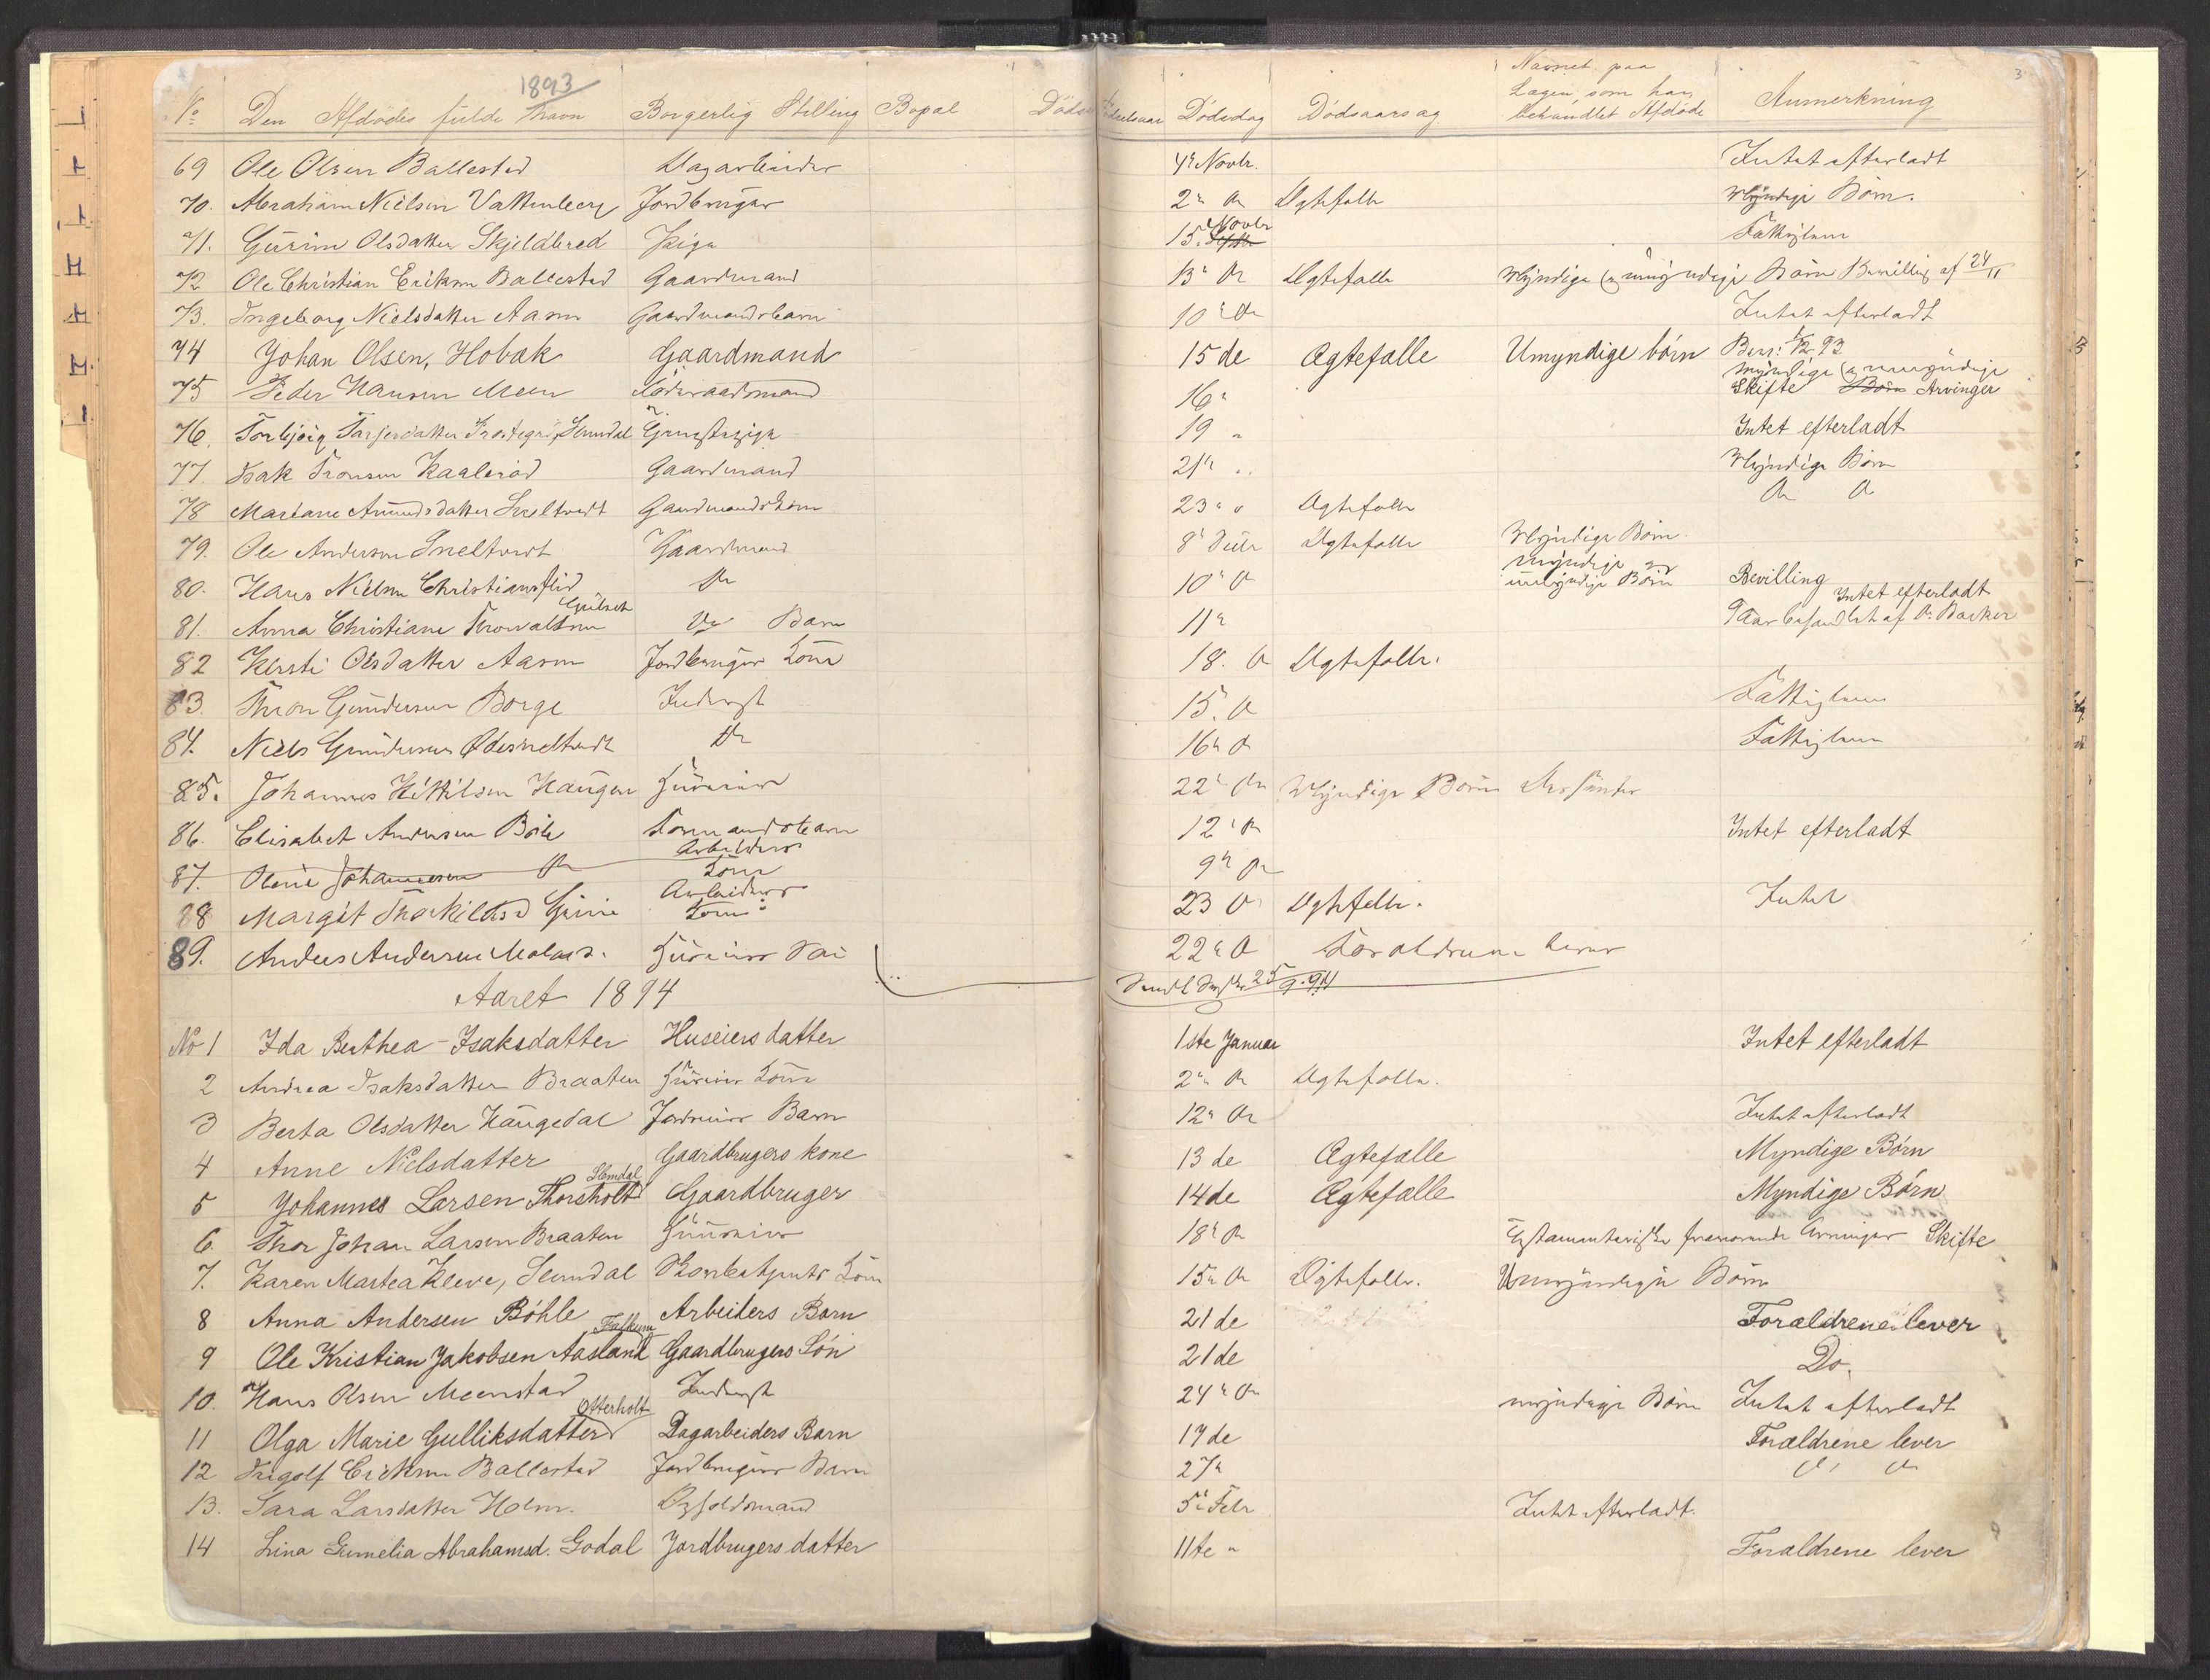 1893
No Den Afdødes fulde Navn Borgerlig Stilling Bopæl Døds Fødselsaar Dødsdag Dødsaarsag Navnet paa Lægen, som har behandlet Afdøde Anmerkning
3
69 Ole Olsen Ballestad Dagarbeider 4de Novbr. Intet efterladt
70. Abraham Nielsen Valkenberg Jordbruger 2den Do Ægtefælle Myndige Børn.
71. Gurine Olsdatter Skjeldbred Pige 15. Septbr Novbr Fattiglem
72 Ole Christian Eriksen Ballestad Gaardmand 13de Do Ægtefælle Myndige og umyndige Børn Bevilling af 24/11
73. Ingeborg Nielsdatter Aasen Gaardmandsbarn 10de Do Intet efterladt
74 Johan Olsen, Hobæk Gaardmand 15 de Ægtefælle Umyndige børn Bev: 1/12 93
75 Peder Hansen Moen Føderaadsmand 16de myndige og umyndige Skifte Børn Arvinger
76. Torbjørg Tarjesdatter Slemdal 19 " Intet efterladt
77. Isak Tronsen Gaardmand 21de " Myndige Børn
78 Mariane Amundsdatter Sneltvedt 23de " Ægtefælle Do Do
79. Ole Andersen Sneltvedt Gaardmand 8de Ægtefælle Myndige Børn.
80. Hans Nielsen Do 10de Do myndige og umyndige Børn Bevilling
81. Anna Christiane Do Barn 11te Intet efterladt 9 Aar behandlet af Dr. Backer
82 Kirsti Olsdatter Aasen Jordbruger Kone 18. Do Ægtefælle.
83. Thron Gundersen Borge Inderst 15. Do Fattiglem
84. Niels Gundersen Ødesneltvedt Do 16de Do Fattiglem
85. Johannes Kittilsen Haugen Huseier 22de Do Myndige Børn
86. Elisabet Andersen Bøle 12te Do Intet efterladt
87. Olene Johannesen Do Arbeiders Kone 9de Do
88 Margit Arbeiders Kone 23 Do Ægtefælle. Intet
89. Anders Andersen Huseiers 22de Do Forældrene lever
Aaret 1894
25/9.94
No 1 Ida Berthea Isaksdatter Huseiers datter 1ste Januar Intet efterladt
2 Andrea Isaksdatter Braaten Huseier Kone 2den Do Ægtefælle.
3 Berta Olsdatter Haugedal Barn 12te Do Intet efterladt
4 Anne Nielsdatter Gaardbrugers kone 13 de Ægtefælle Myndige Børn
5 Johannes Larsen Thorsholt Slemdal Gaardbruger 14de Ægtefælle Myndige Børn
6. Thor Johan Larsen Braaten Huseier 18de Do Arvinger Skifte
7. Karen Martea Kleve, Slemdal Kone 15de Do Ægtefælle. Umyndige Børn
8 Anna Andersen Bøhle Arbeiders Barn 21 de Forældrene lever
9 Ole Kristian Jakobsen Aasland Falkum Gaardbrugers Søn 21de Do.
10. Hans Olsen Meenstad Inderst 24de Do myndige Børn Intet efterladt
11 Olga Marie Gulliksdatter Otterholt Dagarbeiders Barn 17 de Forældrene lever
12 Ingolf Eriksen Ballestad Jordbrugers Barn 27de Do Do
13. Sara Larsdatter Holm. 5te Febr Intet efterladt.
14 Lina Gumelia Abrahamsd. Godal Jordbrugers datter 11te " Forældrene lever